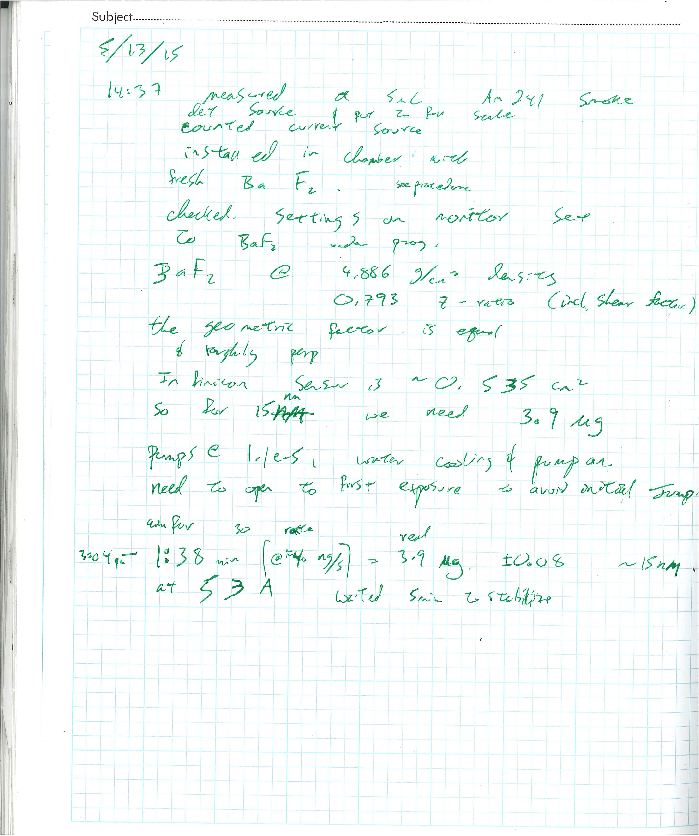 Subject
5/13/15
14:37 measured a Am 241 Smoke
det source & put to scale
counted current source
installed in chamber with
fresh BaF2. see procedure
checked settings on monitor set
to BaF2 under prog.
BaF2 @ 4.886 g/cm³ density
0.793 z-ratio (incl. shear factor)
the geometric factor is equal
& roughly perp
Inficon Sensor is ~0.535 cm²
so for 15 nm we need 3.9 µg
Pumps @ 1.1e-5, water cooling & pump on.
need to open to first exposure to avoid initial Jump.
aim for so rate real
3:04 pm 1:38 min [@ ~40 ng/s] = 3.9 µg. ±0.08 ~15nm.
at 53 A waited 5min to stabilize